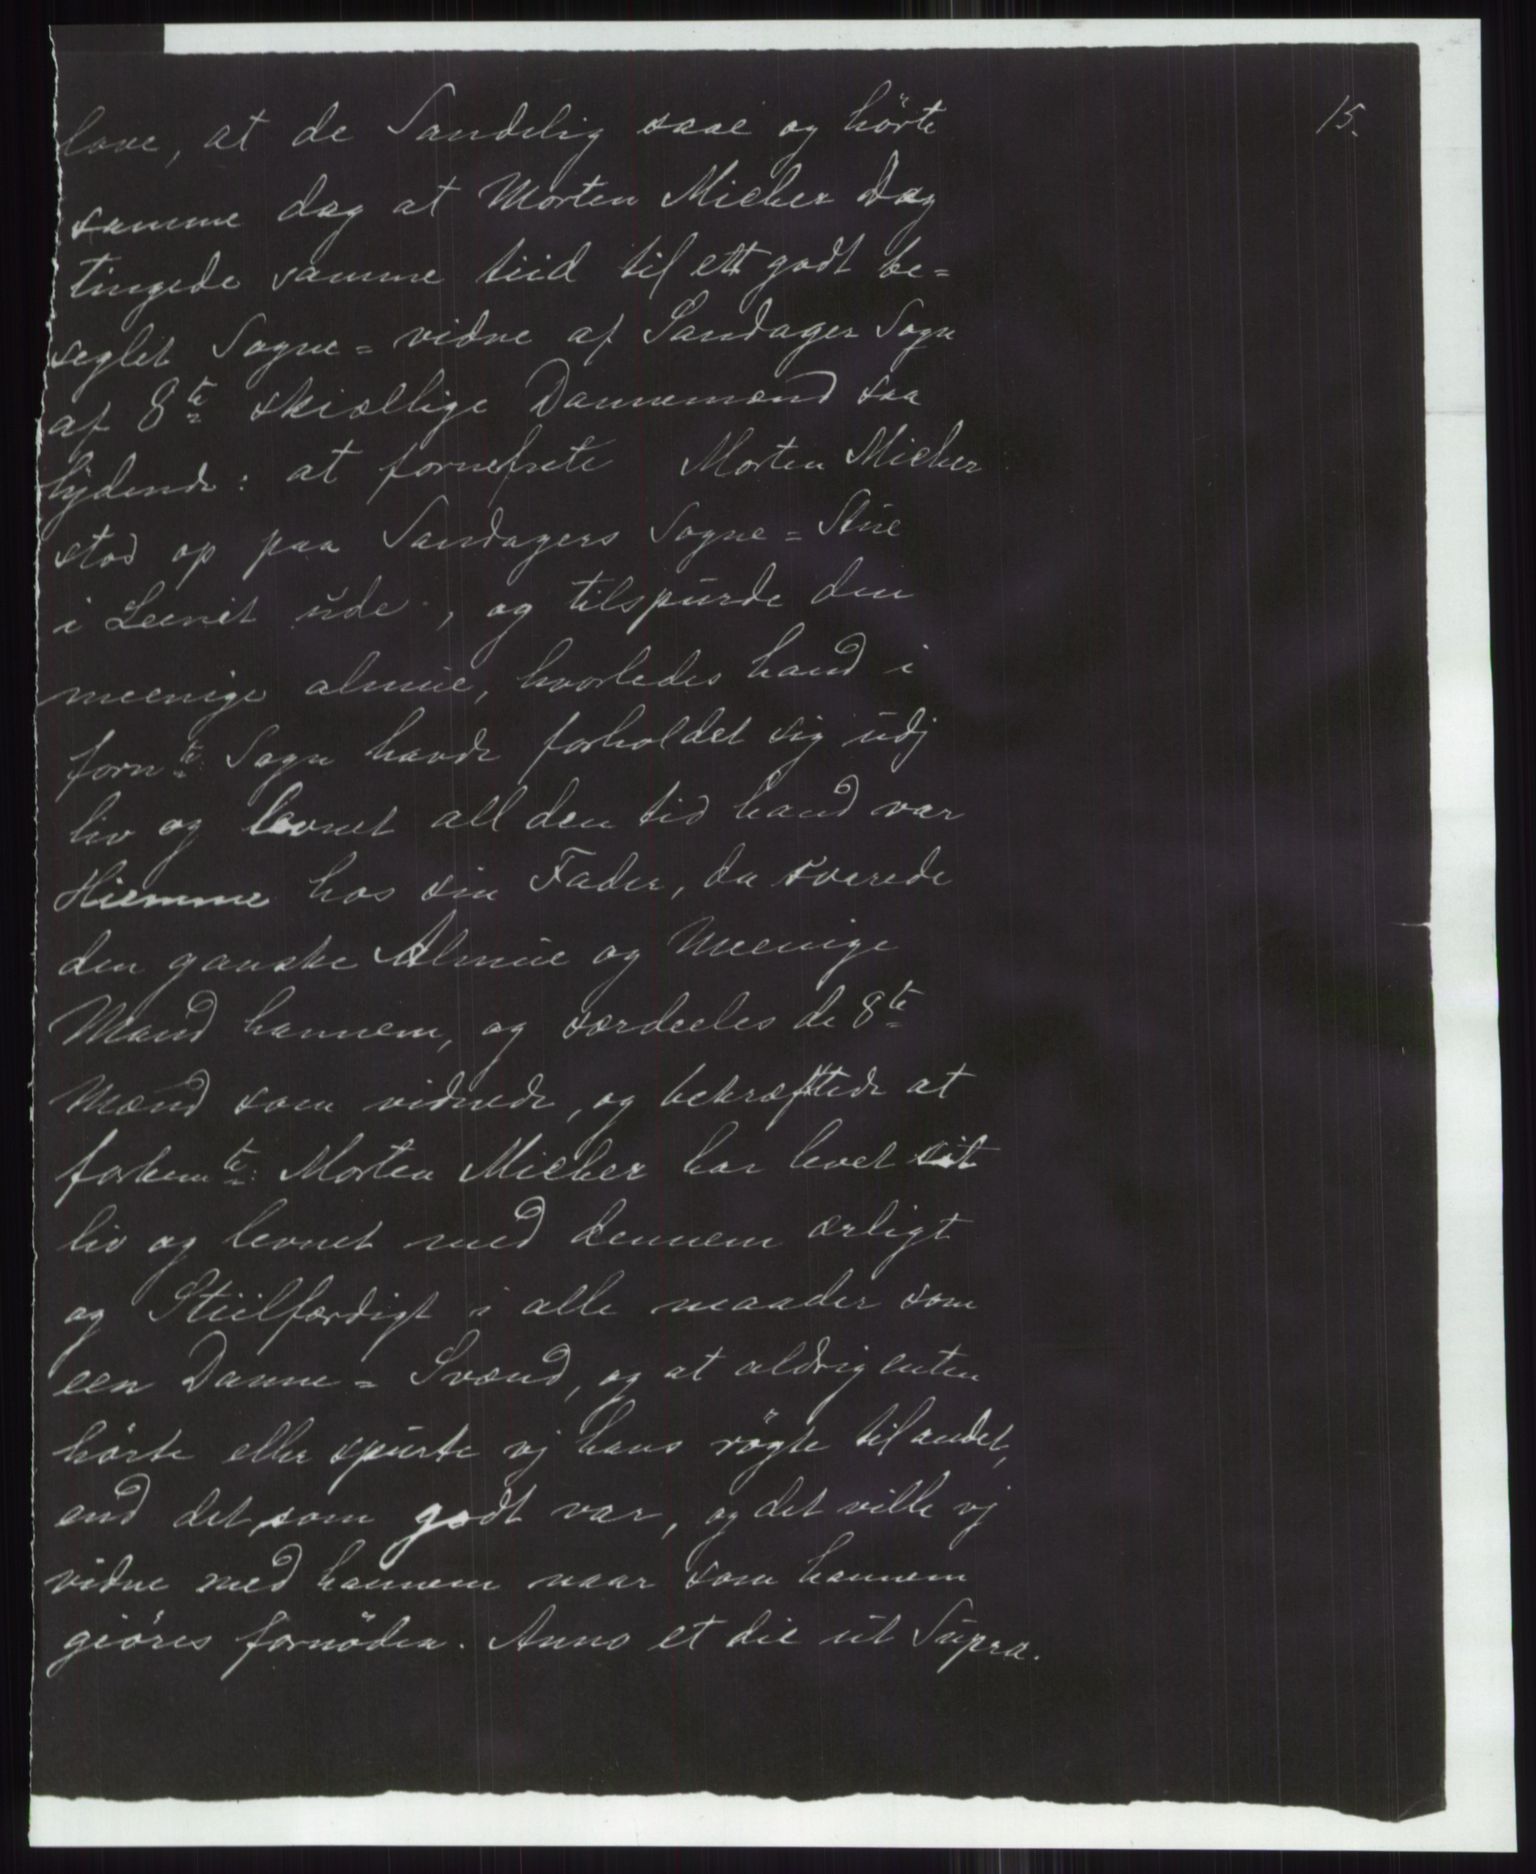 15.
love, at de Sandelig saae og hörte
samme dag at Morten Micher Dag
tingede samme tiid til ett godt be=
seglet Sogne=vidne af Sandager Sogn
af 8te skiællige Dannemænd saa
lydende: at fornefnte Morten Micher
stod op paa Sandagers Sogne=Stüe
i Leenet üde, og tilspurde den
meenige almüe, hvorledes hand i
fornte Sogn havde forholdet sig üdj
liv og levnet all den tid hand var
Hiemme hos sin Fader, da svarede
den ganske Almüe og Meenige
Mand hannem, og særdeeles de 8te
Mænd som vidnede, og bekræftede at
forbemte Morten Micher har levet sit
liv og levnet med dennem ærligt
og Stiilfærdigt i alle maader som
een Danne=Svend, og at aldrig enten
hörte eller spurte vj hans rögte til andet,
end det som godt var, og det ville vj
vidne med hannem naar som hannem
giöres fornöden. Anno et die ut Supra.